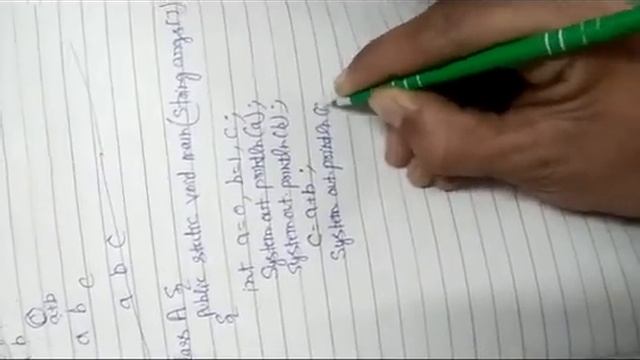 b
a+b
a b c
a b c
class A {
public static void main(String args[])
{
int a=0, b=1, c;
System.out.println(a);
System.out.println(b);
c=a+b;
System.out.println(c